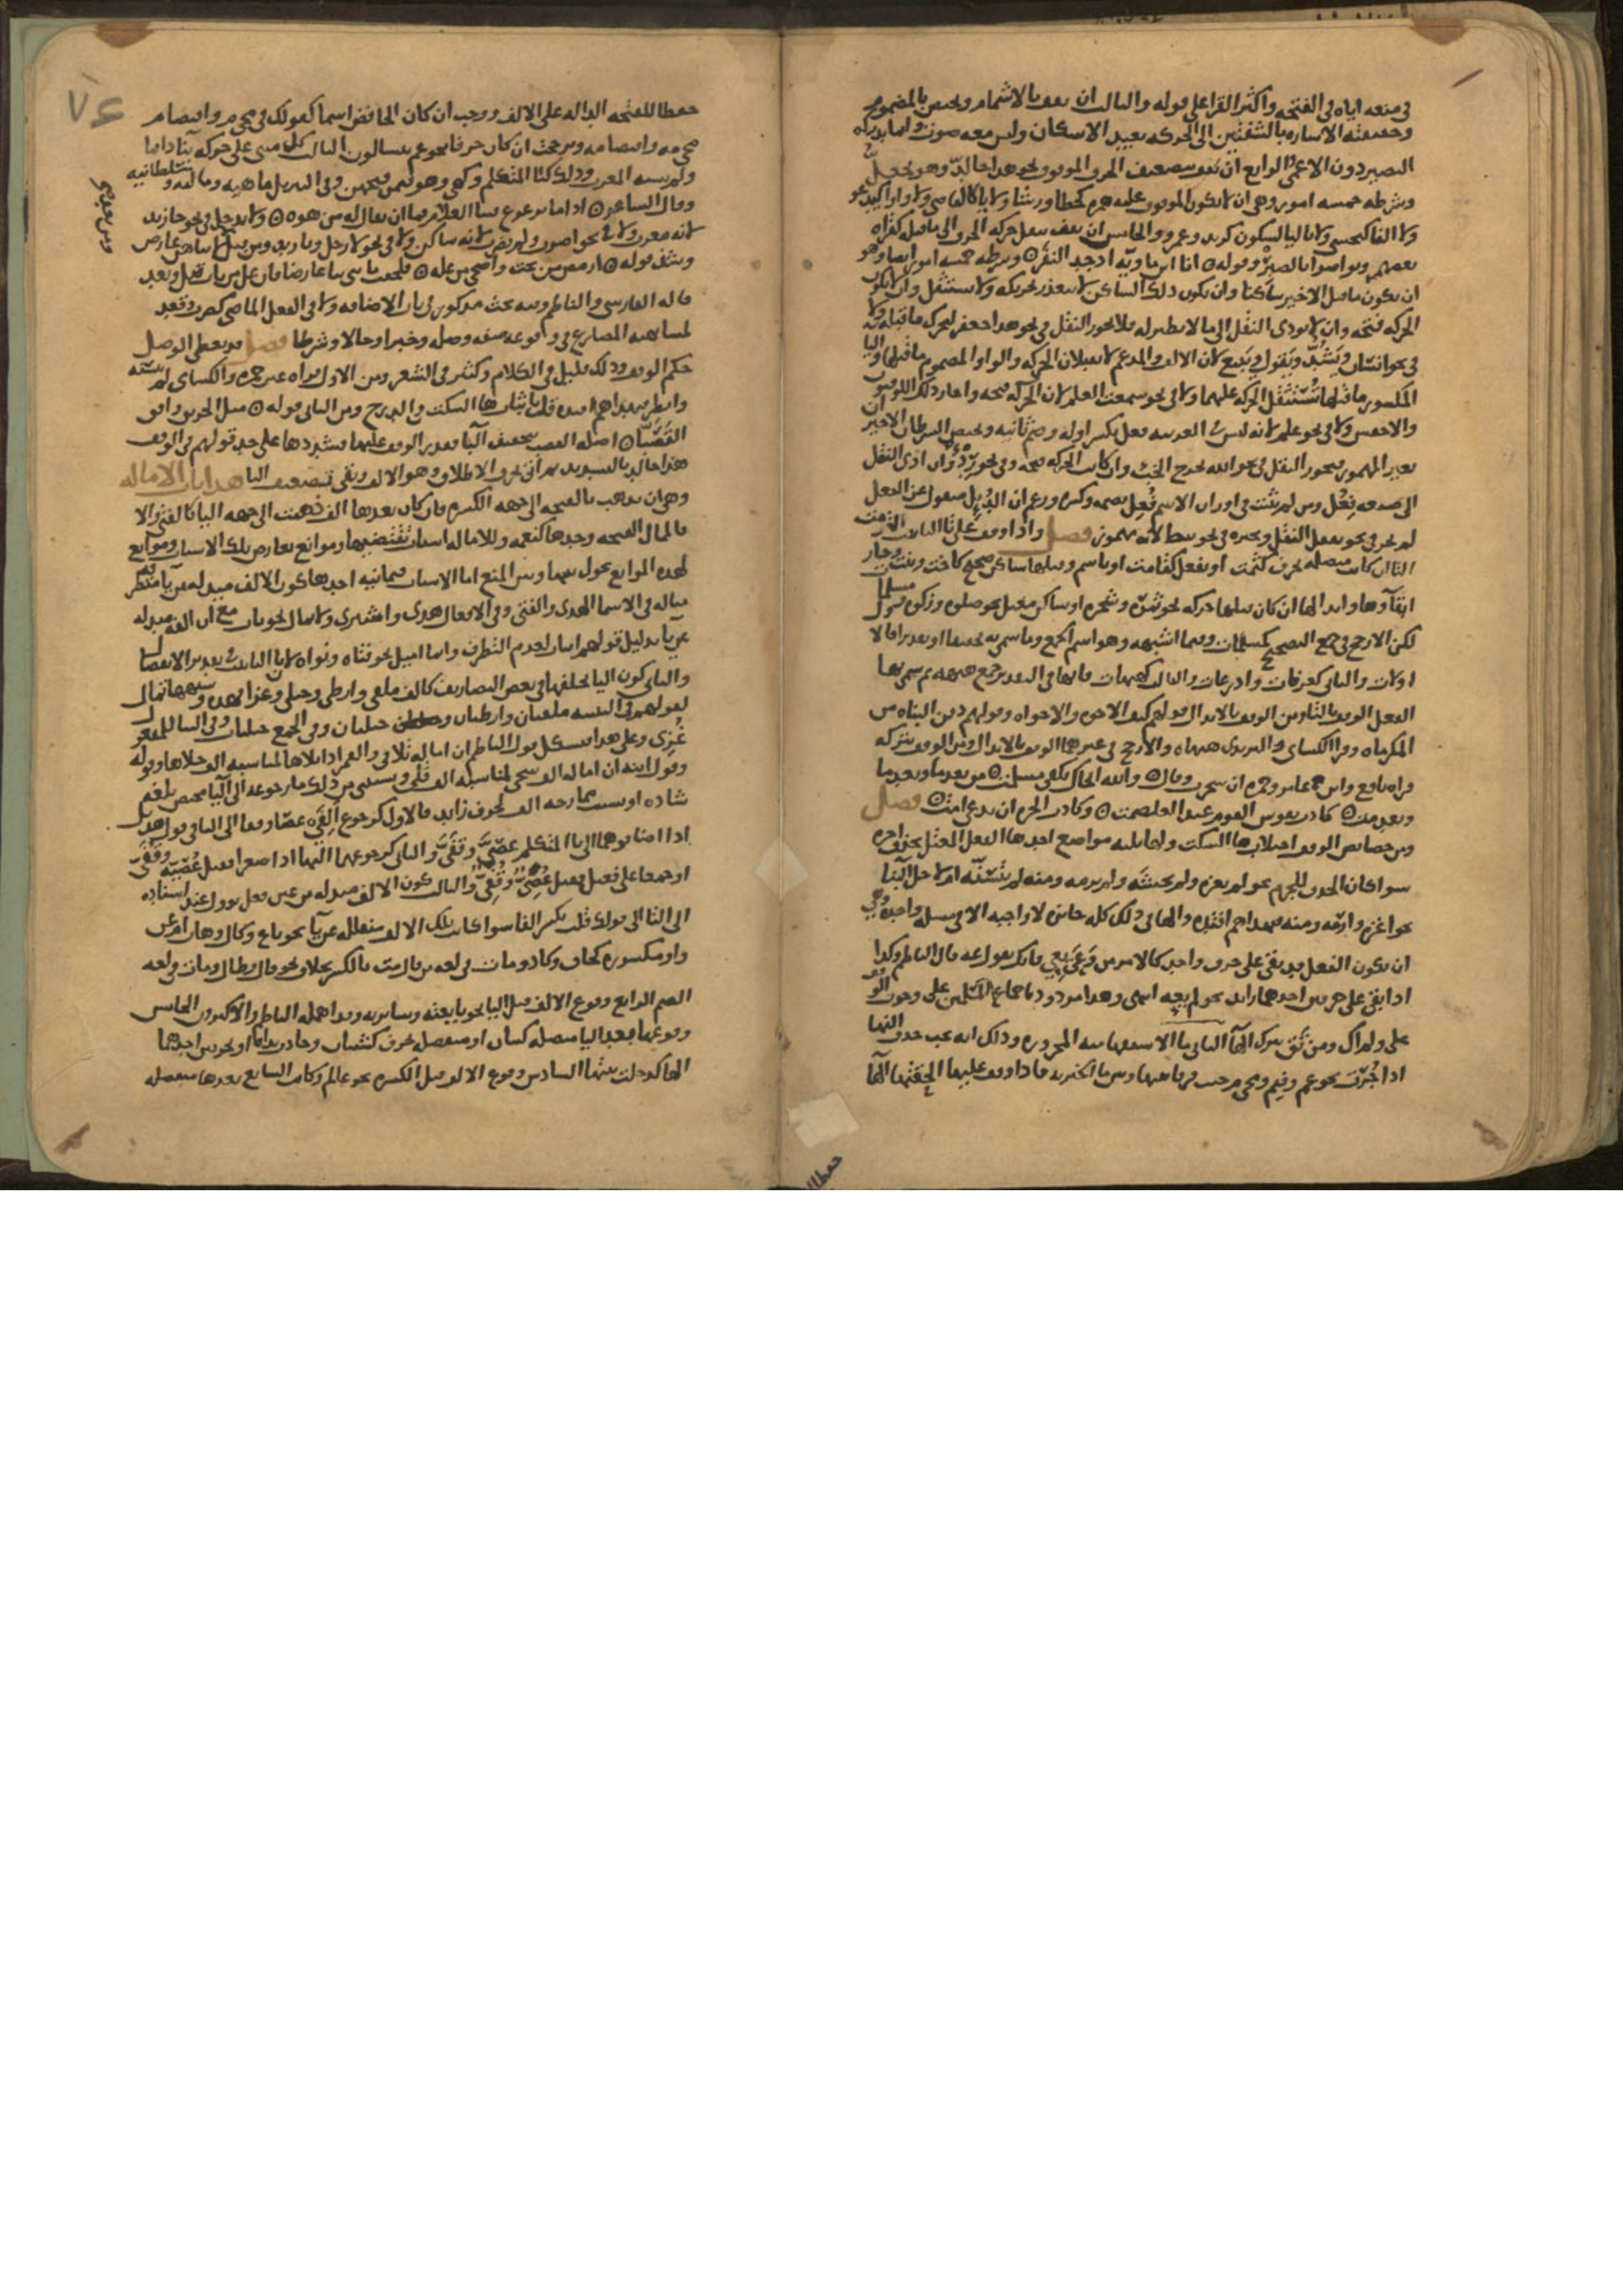 في منعه اياه في الفتحه واكثر القرا على قوله والثالث ان تقف بالاشمام ويختص بالمضموم
وحقيقته الاشاره بالشفتين الى الحركه بعيد الاسكان وليس معه صوت وانما يدركه
البصير دون الاعمى الرابع ان تقف بتضعيف الحرف الموقوف عليه نحو هذا خالدّ وهو يجعلّ
وشرطه خمسه امور وهي ان لا يكون الموقوف عليه همزه كخطا ورشا ولا يا كالقاضي ولا واوا كيدعو
ولا الفا كيخشى ولا تاليا لسكون كزيد وعمرو والخامس ان تقف بنقل حركه الحرف الى ما قبله كقراه
بعضهم وتواصوا بالصبر وقوله انا ابن ماويه اذ جد النقر وشرطه خمسه امور ايضا وهو
ان يكون ما قبل الاخير ساكنا وان يكون ذلك الساكن لا يتعذر تحريكه ولا يستثقل وان لا تكون
الحركه فتحه وان لا يودي النقل الى ما لا نظير له فلا يجوز النقل في نحو هذا جعفر لتحرك ما قبله ولا
في نحو انسان ويشدّ ويقول ويبيع لان الالف والمدغم لا يقبلان الحركه والواو المضموم ما قبلها واليا
المكسور ما قبلها تستثقل الحركه عليهما ولا في نحو سمعت العلم لان الحركه فتحه واجاز ذلك الكوفيون
والاخفش ولا في نحو علم لانه ليس في العربيه فعل بكسر اوله وضم ثانيه ويختص الشرطان الاخيران
بغير المهموز فيجوز النقل في نحو الله يخرج الخبء وان كانت الحركه فتحه وفي نحو ردء وان ادى النقل
الى صيغه فعل ومن لم يثبت في اوزان الاسم فعل بضمه وكسره وزعم ان الدئل منقول عن الفعل
لم يجز في نحو بقفل النقل ويجيزه في نحو ببطء لانه مهموز فصل واذا وقف على تا التانيث التزمت
التا ان كانت متصله بحرف كثمت او بفعل كقامت او باسم وقبلها ساكن صحيح كاخت وبنت وجاز
ابقاوها وابدالها ان كان قبلها حركه نحو ثمره وشجره او ساكن معتل نحو صلوه وزكوه ومسلمات
لكن الارجح في جمع التصحيح كمسلمات وفيما اشبهه وهو اسم الجمع وما سمي به تحقيقا او تقديرا فالا
اولات والثاني كعرفات واذرعات والثالث كهيهات فانها في التقدير جمع هيهيه ثم سمي بها
الفعل الوقف بالتا ومن الوقف بالابدال قولهم كيف الاخوه والاخواه وقولهم دفن البناه من
المكرماه وقرا الكسائي والبزي هيهاه والارجح في غيرهما الوقف بالابدال ومن الوقف بتركه
قراه نافع وابن عامر وحمزه ان شجرت وقال والله انجاك بكفي مسلمت من بعدما وبعدما
وبعدمت كادت نفوس القوم عند الغلصمت وكادت الحره ان تدعى امت فصل
ومن خصائص الوقف اجتلاب ها السكت ولها ثلثه مواضع احدها الفعل المعتل بحذف اخره
سوا كان الحذف للجزم نحو لم يغزه ولم يخشه ولم يرمه ومنه لم يتسنه او لاجل البنا
نحو اغزه وارمه ومنه فبهداهم اقتده والها في ذلك كله جائزه لا واجبه الا في مسله واحده وهي
ان يكون الفعل قد بقي على حرف واحد كالامر من وعى يعي فانك تقول عه قال الناظم وكذا
اذا بقي على حرفين احدهما زائد نحو لم يعه انتهى وهذا مردود باجماع المسلمين على وجوب الوقف
على ولم اك ومن تق بترك الها الثاني ما الاستفهاميه المجروره وذلك انه يجب حذف الفها
اذا جرت نحو عم وفيم ومجي م جئت فرقا بينها وبين ما الخبريه فاذا وقف عليها الحقتها الها
حفظا
حفظا للفتحه الداله على الالف ووجب ان كان الخافض اسما كقولك في مجي م واقتضا م
مجي مه واقتضا مه وترجحت ان كان حرفا نحو عم يتساءلون الثالث كل مبني على حركه بنا دائما
ولم يشبه المعرب وذلك كيا المتكلم وكهي وهو فيمن فتحهن وفي التنزيل ما هيه وماليه وسلطانيه
وقال الشاعر اذا ما ترعرع فينا الغلام فما ان يقال له من هوه ولا تدخل في نحو جا زيد
لانه معرب ولا في نحو اضرب ولم يضرب لانه ساكن ولا في نحو لا رجل ويا زيد ومن قبل لان بناهن عارض
ومن بعد صح
وشذ قوله ارمض من تحت واضحى من عله فلحقت ما بني بنا عارضا فان عل من باب قبل وبعد
قاله الفارسي والناظم وفيه بحث مذكور في باب الاضافه ولا في الفعل الماضي كضرب وقعد
لمشابهته المضارع في وقوعه صفه وصله وخبرا وحالا وشرطا فصل قد يعطى الوصل
حكم الوقف وذلك قليل في الكلام وكثير في الشعر ومن الاول قراه غير حمزه والكسائي لم يتسنه
وانظر فبهداهم اقتده قل باثبات ها السكت في الدرج ومن الثاني قوله مثل الحريق وافق
القصبّا اصله القصب بتخفيف البا فقدر الوقف عليها فشددها على حد قولهم في الوقف
هذا خالدّ بالتشديد ثم اتى بحرف الاطلاق وهو الالف وبقي تضعيف البا هذا باب الاماله
وهي ان تذهب بالفتحه الى جهه الكسره فان كان بعدها الف ذهبت الى جهه اليا كالفتى والا
فالممال الفتحه وحدها كنعمه وللاماله اسباب تقتضيها وموانع تعارض تلك الاسباب وموانع
لهذه الموانع تحول بينها وبين المنع اما الاسباب فثمانيه احدها كون الالف مبدله من يا متطرفه
مثاله في الاسما الهدى والفتى وفي الافعال هدى واشترى ولا يمال نحو ناب مع ان الفه مبدله
عن يا بدليل قولهم انياب لعدم التطرف وانما اميل نحو فتاه ونواه لان تا التانيث في تقدير الانفصال
والثاني كون اليا تخلفها في بعض التصاريف كالف ملهى وارطى وحبلى وغزا فهذه وشبهها تمال
لقولهم في التثنيه ملهيان وارطيان وحبليان وفي الجمع حبليات وفي البنا للمفعول
غزي وعلى هذا فيشكل قول الناظم ان اماله تلا في والقمر اذا تلاها لمناسبه الف جلاها وقوله
وقول ابنه ان اماله الف سجى لمناسبه الف قلى ويستثنى من ذلك ما رجوعه الى اليا مختص بلغه
شاذه او بسبب ممازجه الالف لحرف زائد فالاول كرجوع الف عصا وقفا الى اليا في قول هذيل
اذا اضافوها الى يا المتكلم عصيّ وقفيّ والثاني كرجوعهما اليها اذا صغرا فقيل عصيه وقفي
او جمعا على فعول فقيل عصي وقفي والثالث كون الالف مبدله من عين فعل يؤول عند اسناده
الى التا الى قولك فلت بكسر الفا سوا كانت تلك الالف منقلبه عن يا نحو باع وكال وهاب ام عن
واو مكسوره كخاف وكاد ومات في لغه من قال مت بالكسر بخلاف نحو قال وطال ومات في لغه
الضم الرابع وقوع الالف قبل اليا نحو بايعته وسايرته وقد اهمله الناظم والاكثرون الخامس
وقوعها بعد اليا متصله كبيان او منفصله بحرف كشيبان وجادت يداه او بحرفين احدهما
الها كدخلت بيتها السادس وقوع الالف قبل الكسره نحو عالم وكاتب السابع بعدها منفصله
٧٤